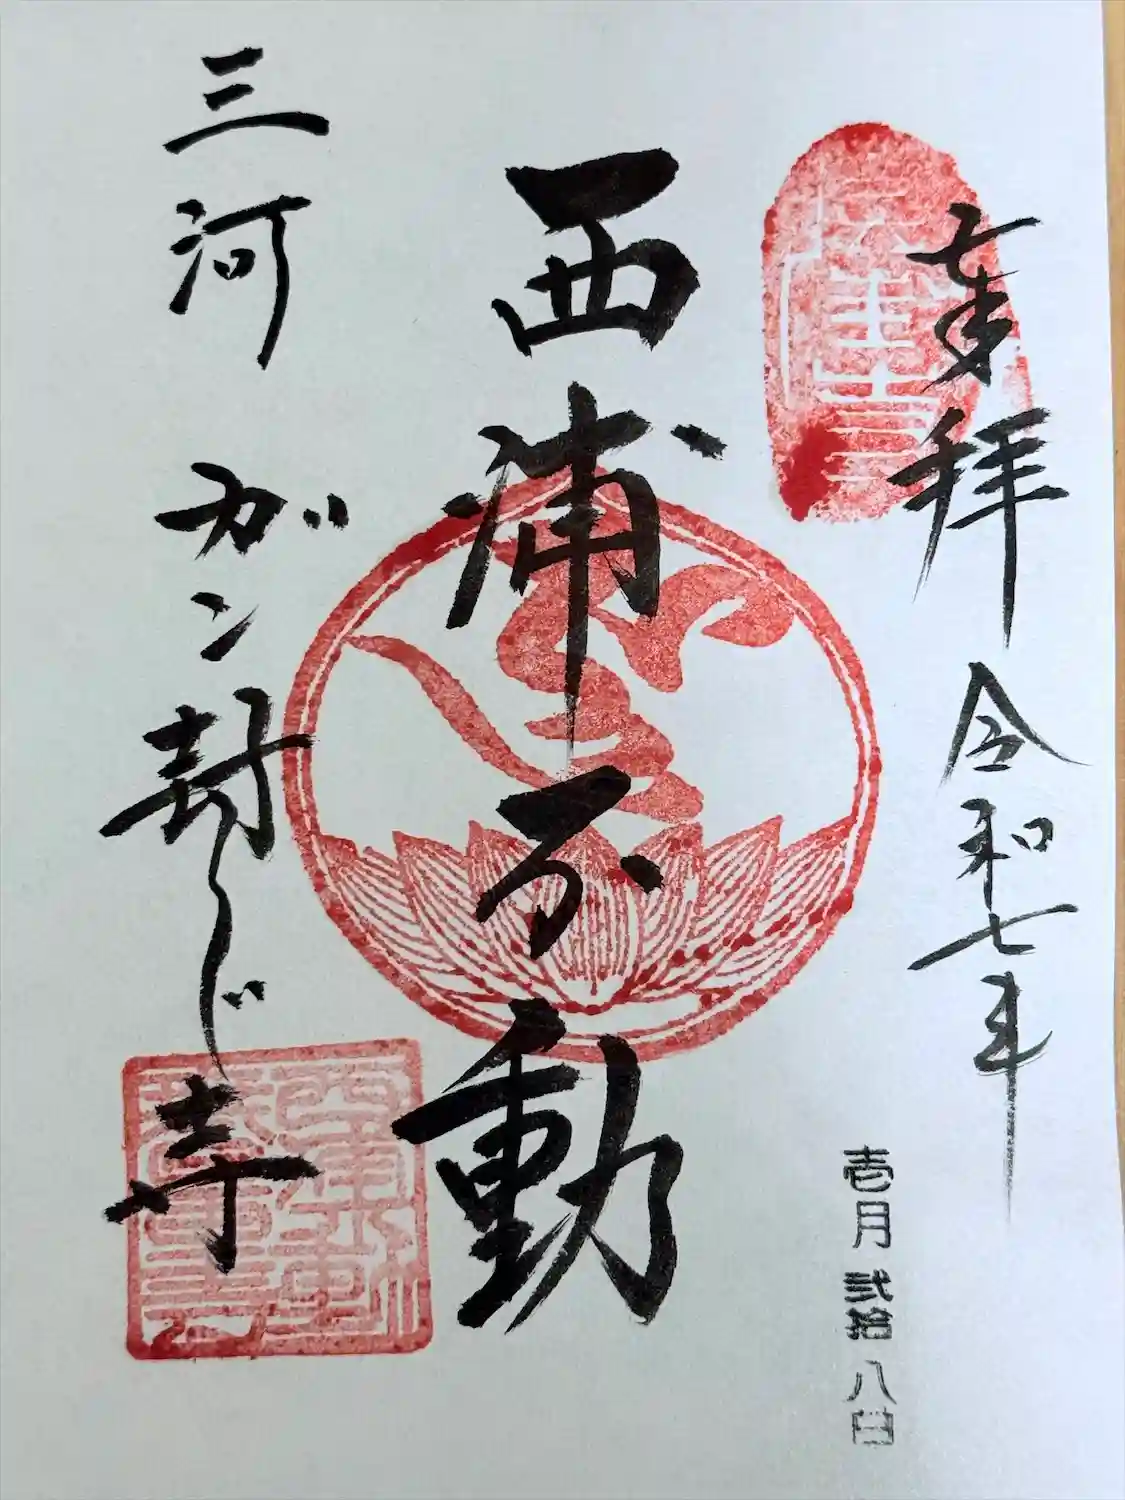 奉拝 令和七年
壱月弐拾八日
西浦不動
三河 ガン封じ寺